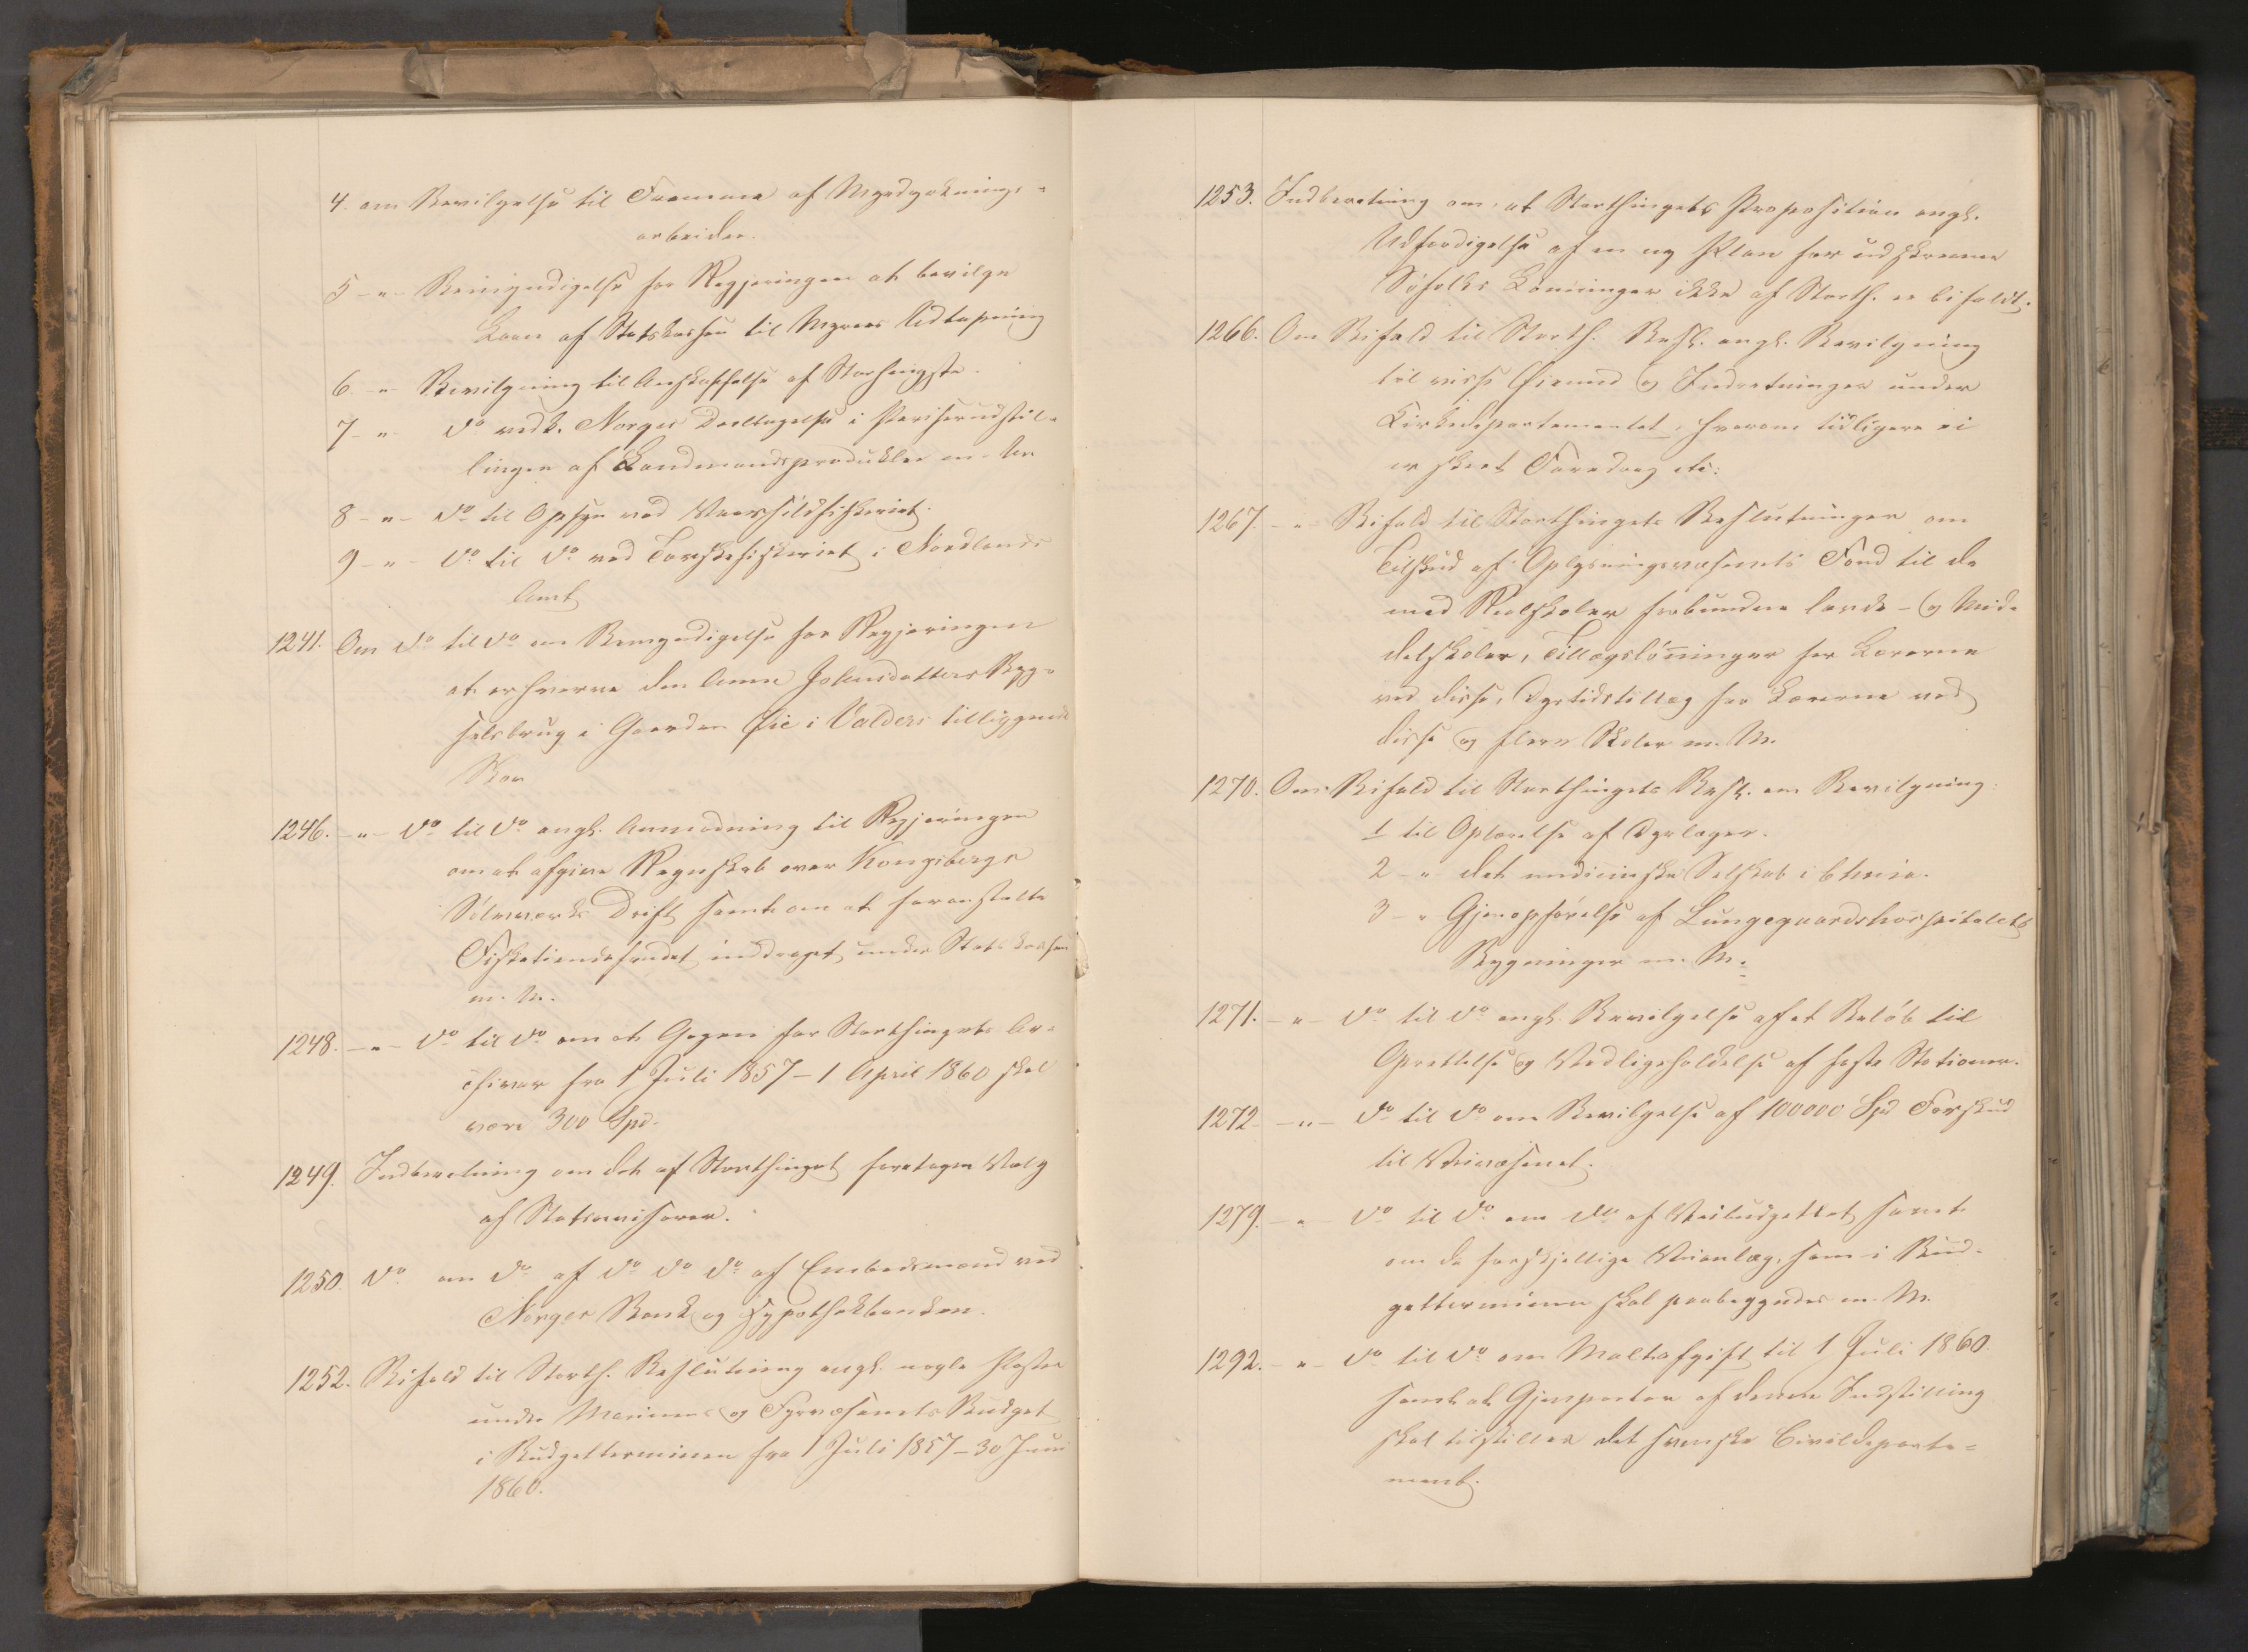 4. om Bevilgelse til Fremme af Myrdyrknings-
arbeider.
5 - " - Bemyndigelse for Regjeringen at bevilge
Laan af Statskassen til Myrers Udtapning
6. - " Bevilgning til Anskaffelse af Storhingste.
7 - " do vedk. Norges Deeltagelse i Pariserudstil-
lingen af Landmandsprodukter m. M.
8 - " - do til Opsyn ved Vaarsildfiskeriet.
9 - " - do til do ved Torskefiskeriet i Nordlands
Amt
1241. Om do til do om Bemyndigelse for Regjeringen
at erhverve den Anne Johnsdatters Byg-
selsbrug i Gaarden Øie i Valders tilliggende
Skov
1246. - " - do til do angl. Anmodning til Regjeringen
om at afgive Regnskab over Kongsbergs
Sølvverks Drift samt om at foranstalte
Fisketiendefondet inddraget under Statskassen
m. M.
1248. - " - do til do om at Gagen for Storthingets Ar-
chivar fra 1 Juli 1857 - 1 April 1860 skal
være 300 Spd.
1249. Indberetning om det af Storthinget foretagne Valg
af Statsrevisorer.
1250. do om do af do do do af Embedsmænd ved
Norges Bank og Hypothekbanken.
1252. Bifald til Storth. Beslutning angl. nogle Poster
under Marinens og Fyrvæsenets Budget
i Budgetterminen fra 1 Juli 1857 - 30 Juni
1860.
1253. Indberetning om, at Storthingets Proposition angl.
Udfærdigelse af en ny Plan for udskrevne
Søfolks Lønninger ikke af Storth. er bifaldt.
1266. Om Bifald til Storth. Besl. angl. Bevilgning
til visse Øiemed og Indretninger under
Kirkedepartementet, hvorom tidligere ei
er skeet Foredrag etc:
1267. - " Bifald til Storthingets Beslutninger om
Tilskud af Oplysningsvæsenets Fond til de
med Realskoler forbundne lærde - og Mid-
delskoler, Tillægslønninger for Lærerne
ved disse, Dyrtidstillæg for Lærerne ved
disse og flere Skoler m. M.
1270. Om Bifald til Storthingets Besl. om Bevilgning
1 til Oplærelse af Dyrlæger.
2 - " det medicinske Selskab i Chnia.
3 - " Gjenopførelse af Lungegaardshospitalets
Bygninger m. M.
1271. - " - do til do angl. Bevilgelse af et Beløb til
Oprettelse og Vedligeholdelse af faste Stationer.
1272 - " - do til do om Bevilgelse af 100000 Spd Forskud
til Veivæsenet.
1279. - " - do til do om do af Veibudgettet samt
om de forskjellige Veianlæg, som i Bud-
getterminen skal paabegyndes m. M.
1292. - " - do til do om Maltafgift til 1 Juli 1860.
samt at Gjenparten af denne Indstilling
skal tilstilles det svenske Civildeparte-
ment.